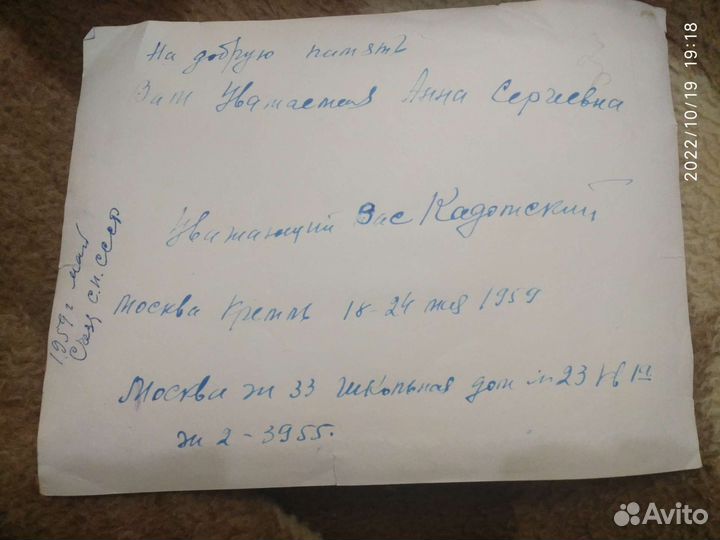 На добрую память
Вам Уважаемая Анна Сергеевна
Уважающий Вас Кадомский
Москва Кремль 18-24 мая 1959
Москва Ж 33 Школьная дом № 23 кв
Ж 2-3955.
1959 г май
Съезд С.П. СССР
2022/10/19 19:18
Avito